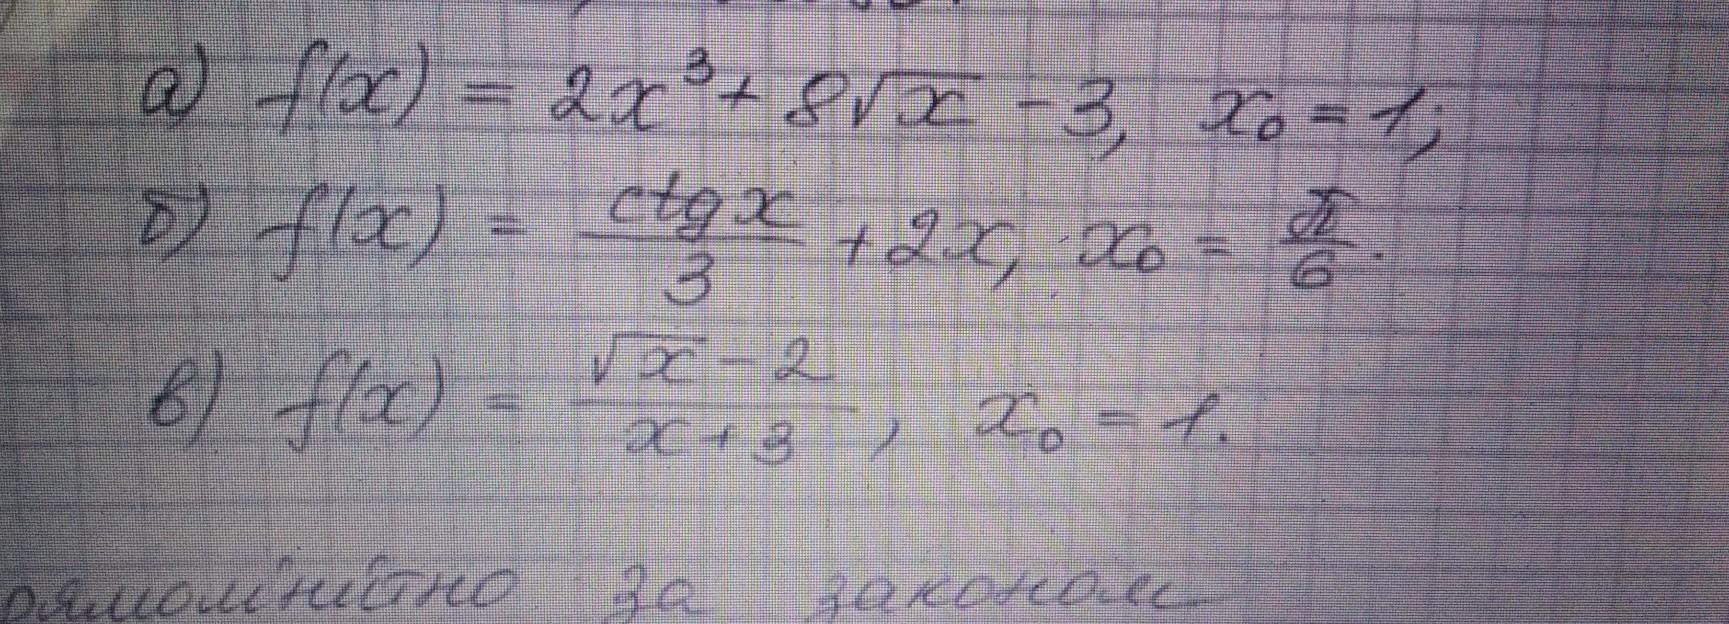 а) f(x) = 2x³ + 8√x - 3, x₀ = 1;
б) f(x) = ctgx/3 + 2x, x₀ = π/6.
в) f(x) = (√x - 2)/(x + 3), x₀ = 1.
за законом